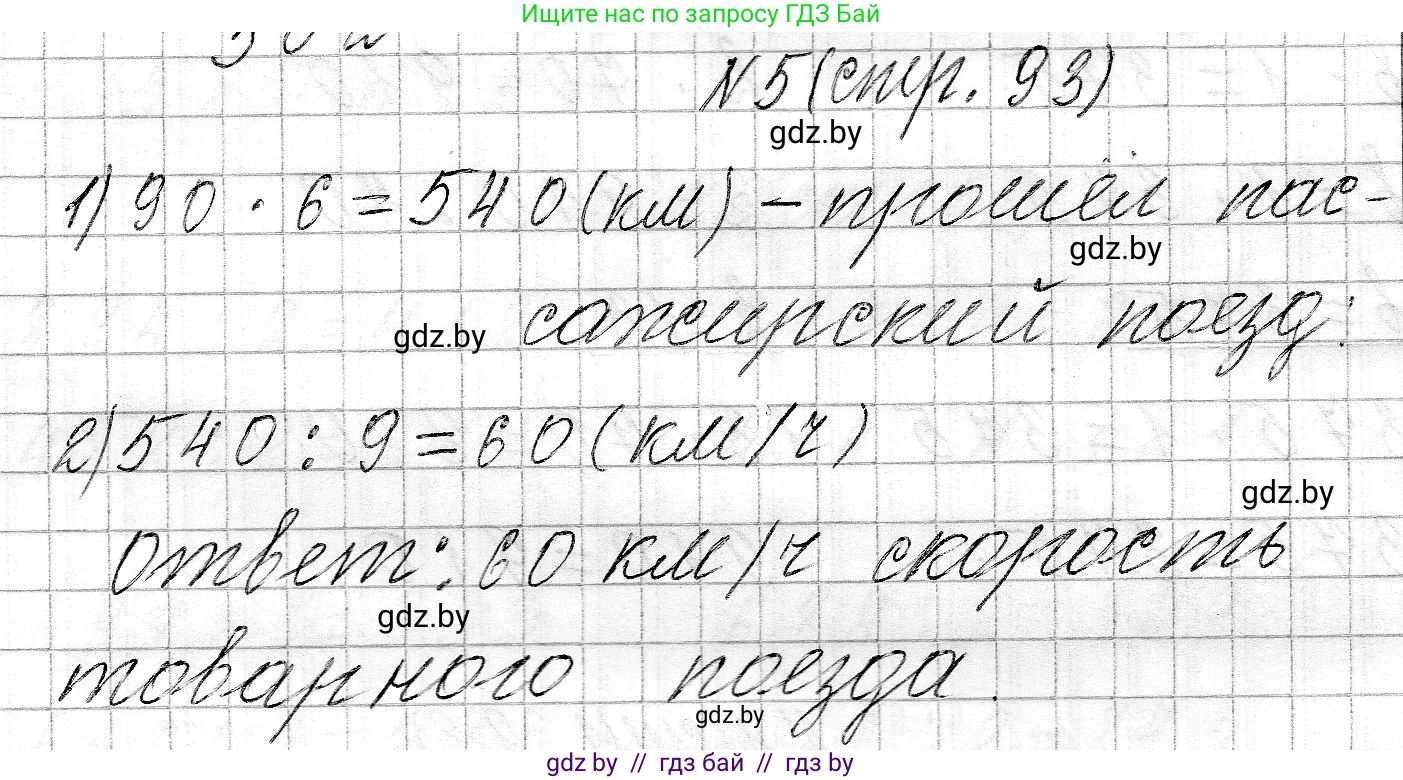 Ищите нас по запросу ГДЗ Бай
N5(стр. 93)
gdz.by
1) 90 · 6 = 540 (км) – прошёл пас-
gdz.by
сажирский поезд.
gdz.by
2) 540 : 9 = 60 (км/ч)
gdz.by
ответ: 60 км/ч скорость
gdz.by
товарного поезда.
gdz.by
gdz by // гдз бай // гдз by